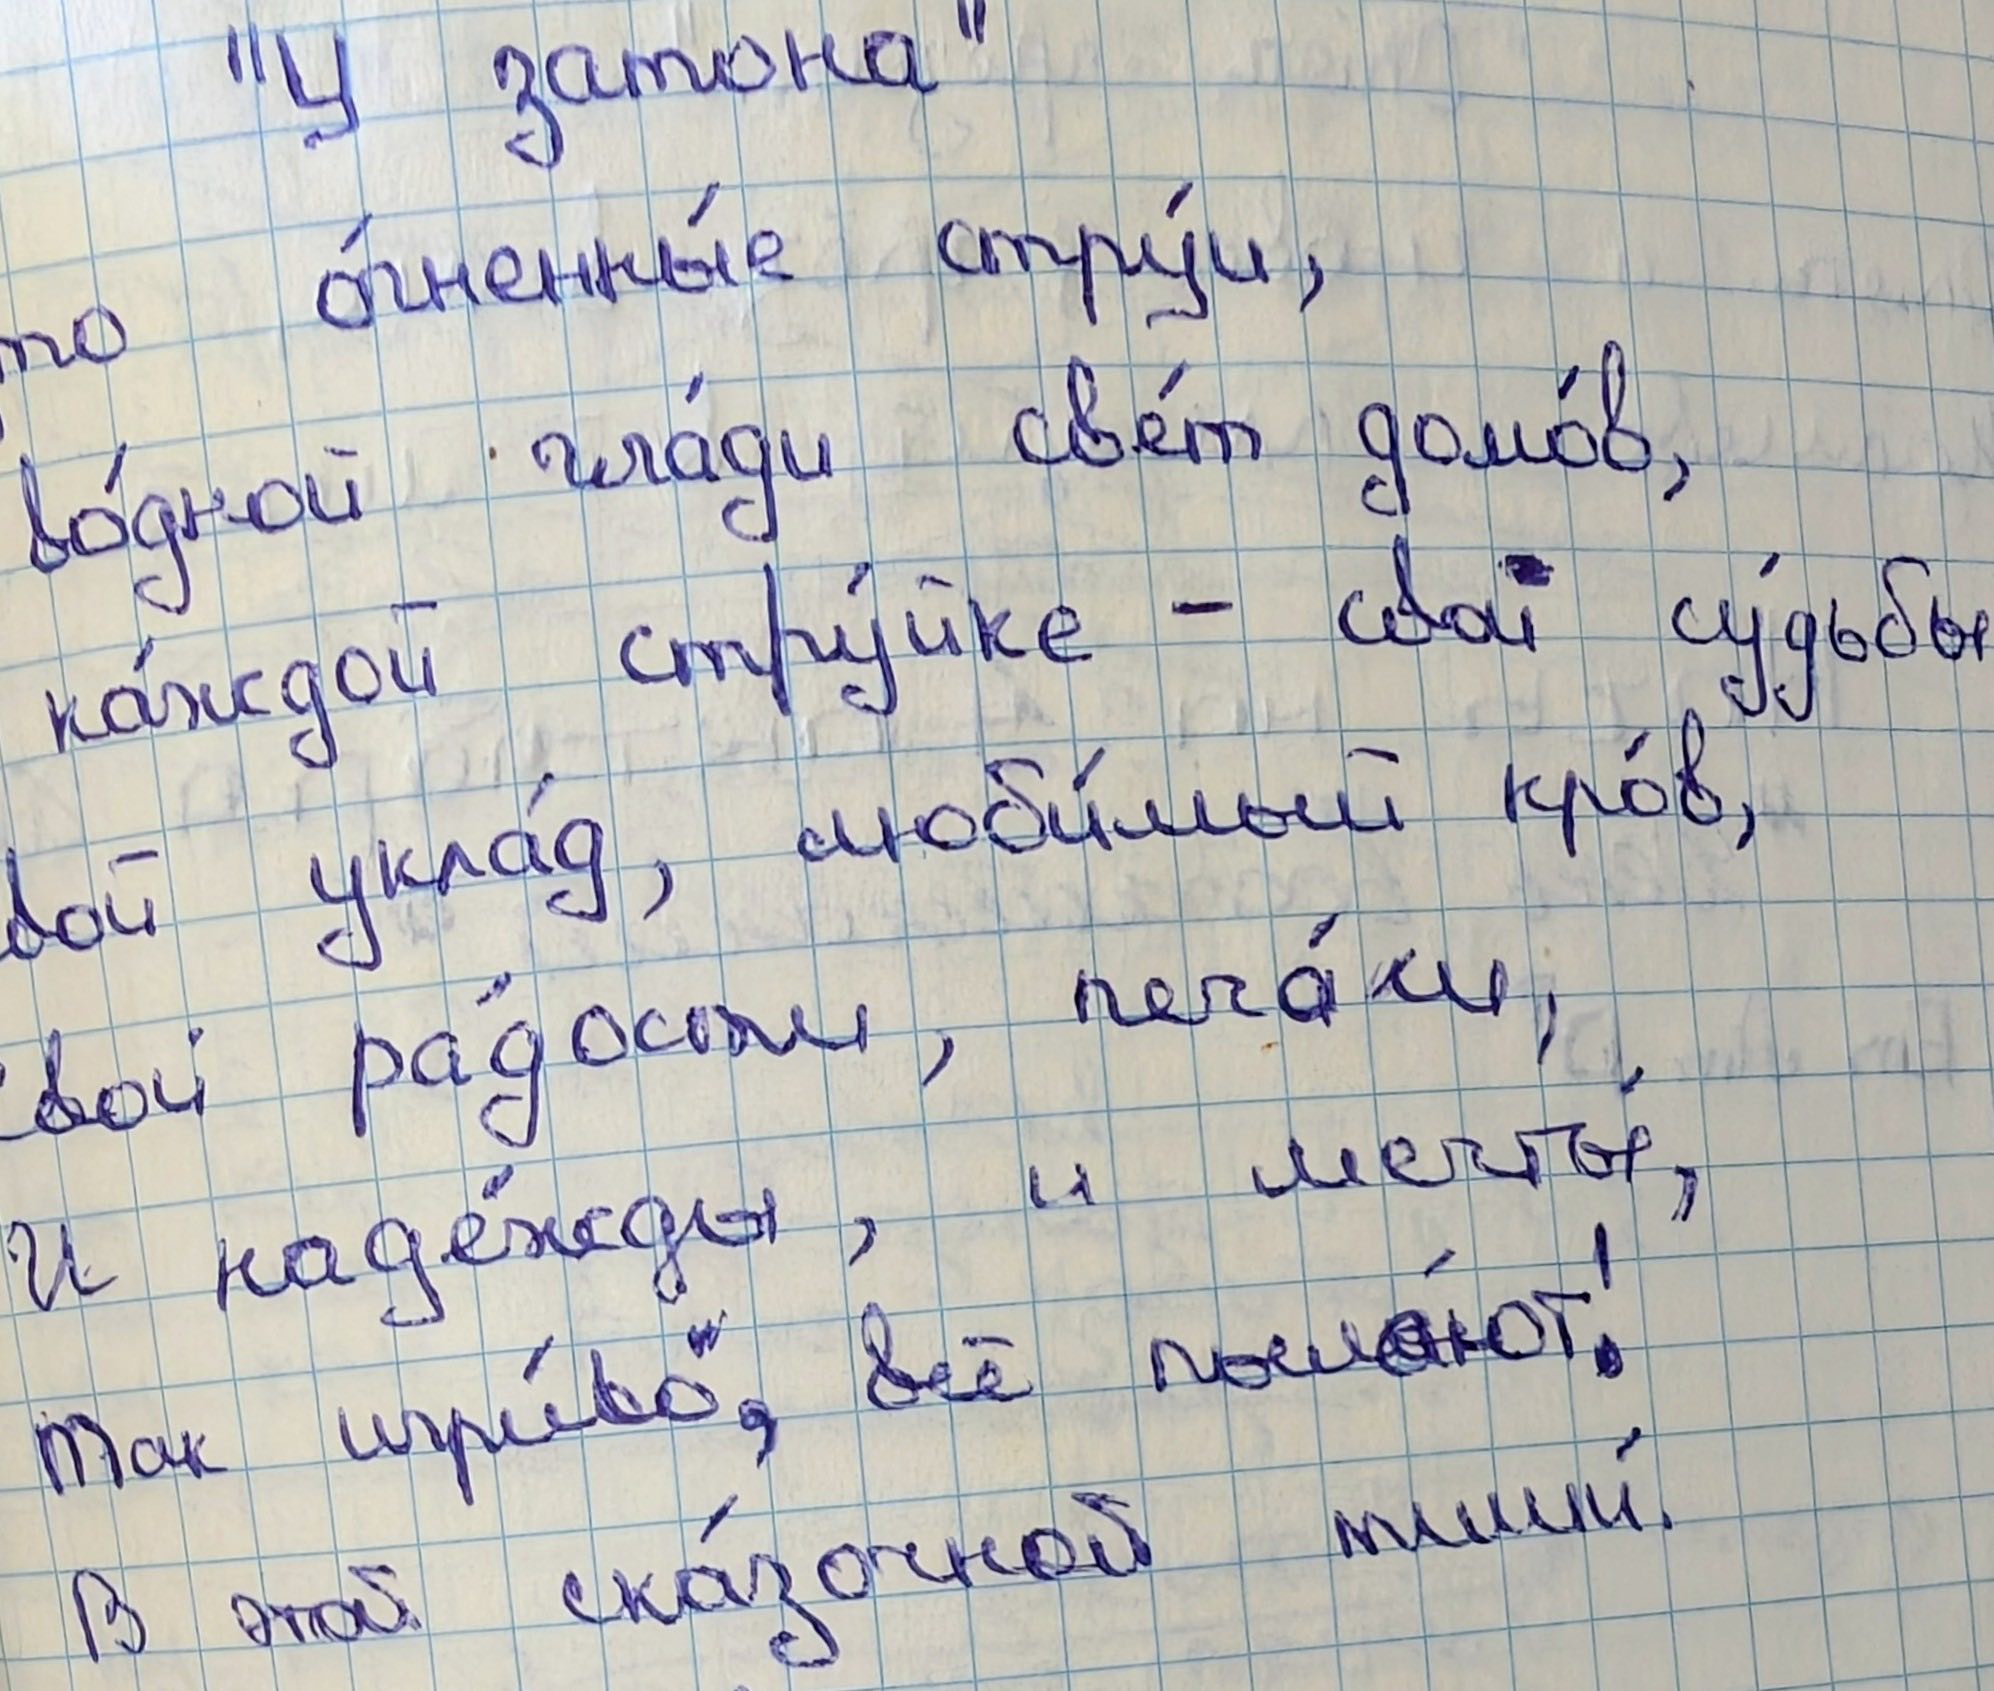 "У затона"
то о́гненны́е стру́и,
во́дной гла́ди све́т домо́в,
ка́ждой стру́йке - свои су́дьбы
вой укла́д, люби́мый кро́в,
свои ра́дости, печа́ли,
И наде́жды, и мечты́,
Так игри́во", всё пыла́ют!
В этой ска́зочной тиши́.